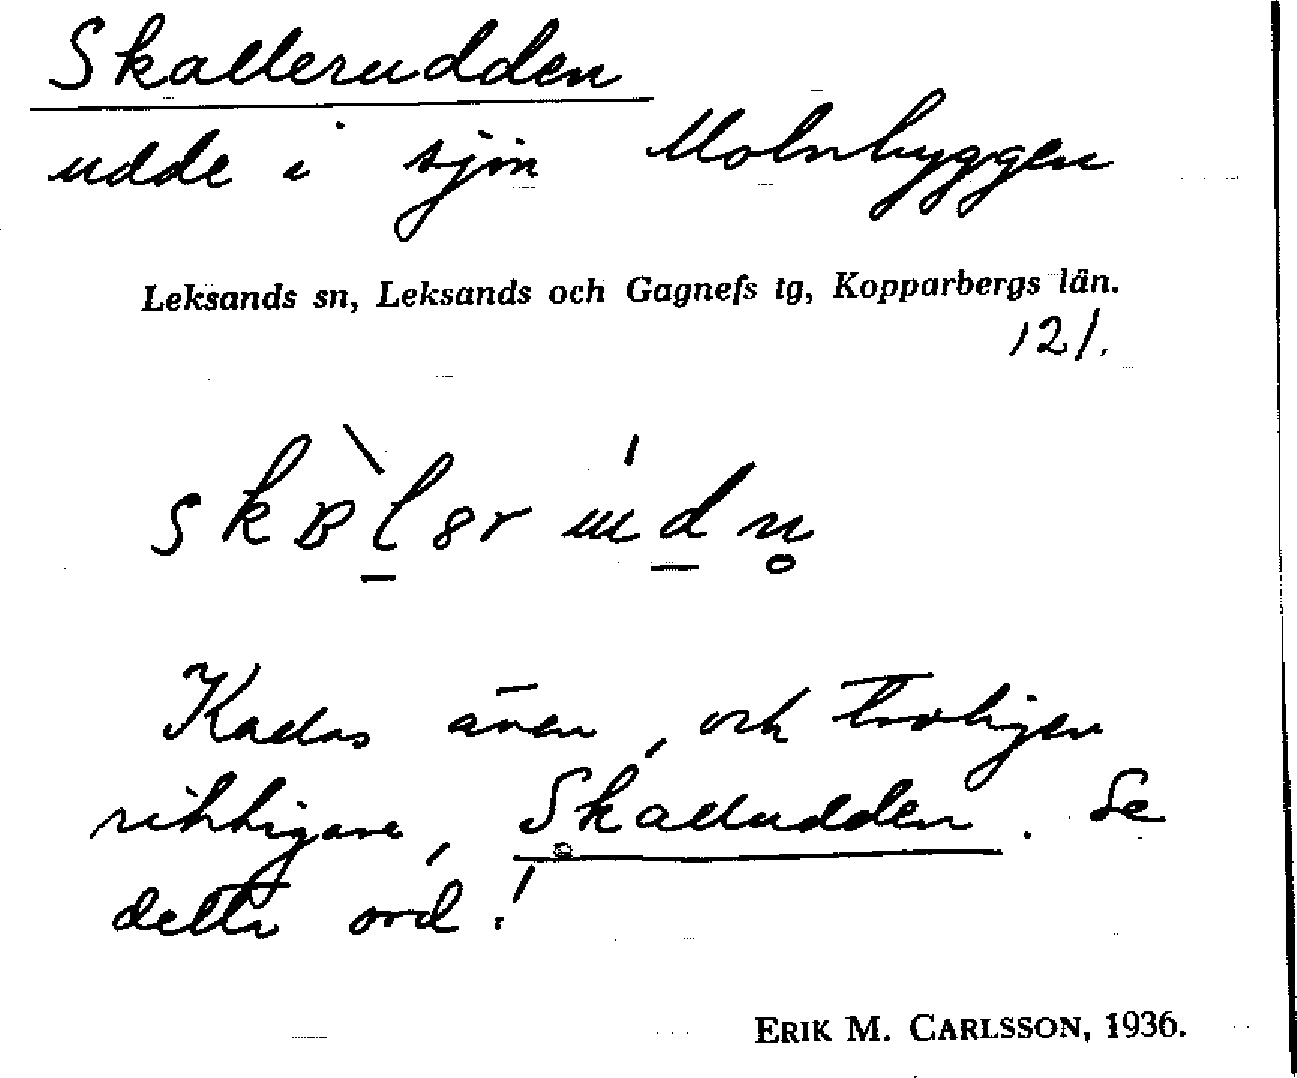 Skallerudden
udde i sjön Molnbyggen
Leksands sn, Leksands och Gagnefs tg, Kopparbergs län.
121.
Kallas även, och troligen
riktigare, Skalludden. Se
detta ord!
ERIK M. CARLSSON, 1936.